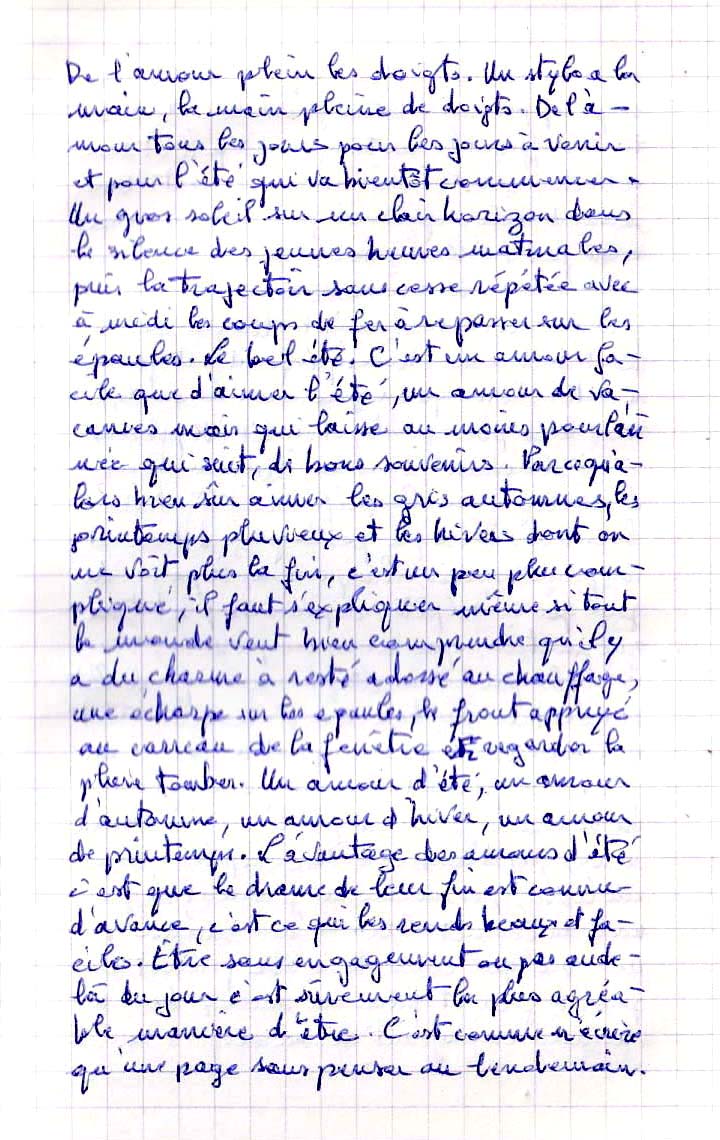 De l'amour plein les doigts. Un stylo a la
main, la main pleine de doigts. De l'à-
mour tous les jours pour les jours à venir
et pour l'été qui va bientôt commencer.
Un gros soleil sur un clair horizon dans
le silence des jeunes heures matinales,
puis la trajectoir sans cesse répétée avec
à midi les coups de fer à repasser sur les
épaules. Le bel été. C'est un amour fa-
cile que d'aimer l'été, un amour de va-
cances mais qui laisse au moins pour l'an
née qui suit, de bons souvenirs. Parcequ'a-
lors bien sûr aimer les gris automnes, les
printemps pluvieux et les hivers dont on
ne voit plus la fin, c'est un peu plus com-
pliqué, il faut s'expliquer même si tout
le monde veut bien comprendre qu'il y
a du charme à resté adossé au chauffage,
une écharpe sur les epaules, le front appuyé
au carreau de la fenêtre et regarder la
pluie tomber. Un amour d'été, un amour
d'automne, un amour d'hiver, un amour
de printemps. L'avantage des amours d'été
c'est que le drame de leur fin est connu
d'avance, c'est ce qui les rends beaux et fa-
ciles. Être sans engagement ou pas aude-
là du jour c'est sûrement la plus agréa-
ble manière d'être. C'est comme n'écrire
qu'une page sans penser au lendemain.